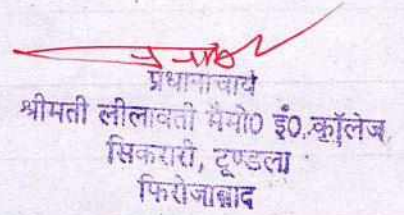 प्रधानाचार्य
श्रीमती लीलावती मैमो० इं०.कॉलेज
सिकरारी, टूण्डला
फिरोजाबाद